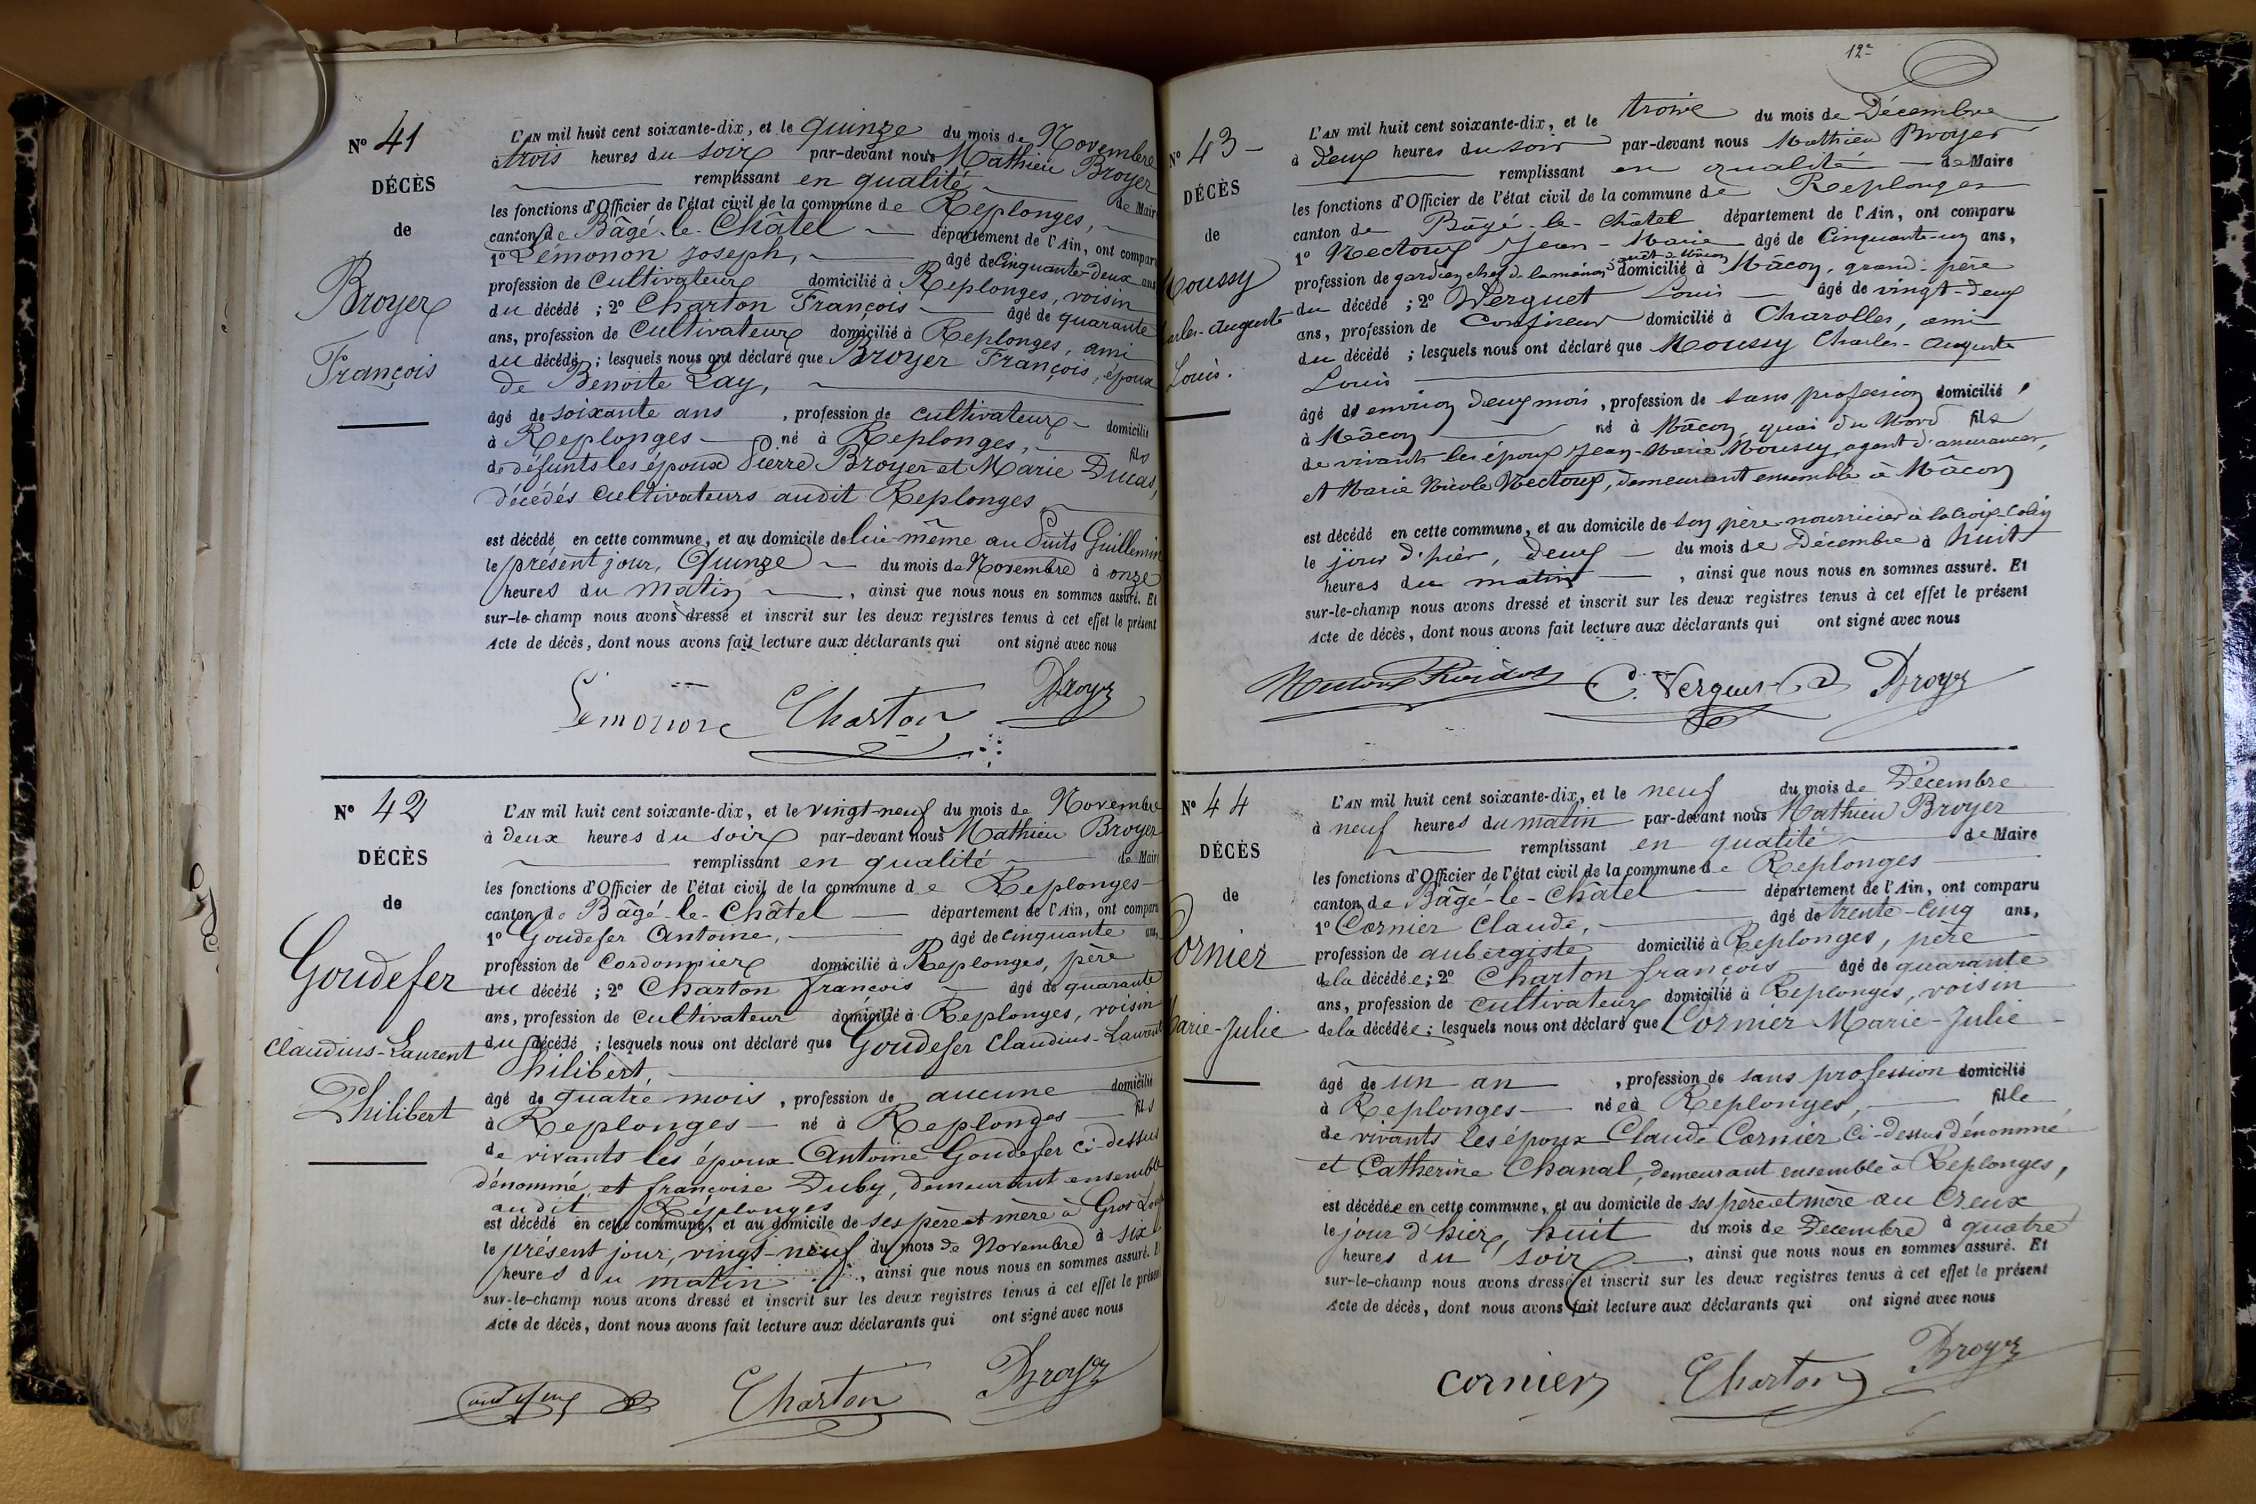 Nº 41
DÉCÈS
de
Broyer
François
L'AN mil huit cent soixante-dix, et le quinze du mois de Novembre
à trois heures du soir par-devant nous Mathieu Broyer
remplissant en qualité de Maire
les fonctions d'Officier de l'état civil de la commune de Replonges,
canton de Bâgé-le-Châtel département de l'Ain, ont comparu
1º Lémonon Joseph, âgé de Cinquante-deux ans
profession de Cultivateur domicilié à Replonges, voisin
du décédé ; 2º Charton François âgé de quarante
ans, profession de Cultivateur domicilié à Replonges, ami
du décédé ; lesquels nous ont déclaré que Broyer François, époux
de Benoite Lay,
âgé de soixante ans , profession de cultivateur domicilié
à Replonges né à Replonges, fils
de défunts les époux Pierre Broyer et Marie Ducas,
décédés cultivateurs audit Replonges
est décédé en cette commune, et au domicile de lui-même au Puits Guillemin
le présent jour, Quinze du mois de Novembre à onze
heures du matin , ainsi que nous nous en sommes assuré. Et
sur-le-champ nous avons dressé et inscrit sur les deux registres tenus à cet effet le présent
Acte de décès, dont nous avons fait lecture aux déclarants qui ont signé avec nous
Lémonon Charton Broyer
Nº 42
DÉCÈS
de
Goudefer
Claudius-Laurent
Philibert
L'AN mil huit cent soixante-dix, et le vingt-neuf du mois de Novembre
à deux heures du soir par-devant nous Mathieu Broyer
remplissant en qualité de Maire
les fonctions d'Officier de l'état civil de la commune de Replonges
canton de Bâgé-le-Châtel département de l'Ain, ont comparu
1º Goudefer Antoine, âgé de cinquante ans,
profession de Cordonnier domicilié à Replonges, père
du décédé ; 2º Charton françois âgé de quarante
ans, profession de cultivateur domicilié à Replonges, voisin
du décédé ; lesquels nous ont déclaré que Goudefer Claudius-Laurent
Philibert,
âgé de quatre mois , profession de aucune domicilié
à Replonges né à Replonges fils
de vivants les époux Antoine Goudefer ci-dessus
dénommé, et françoise Duby, demeurant ensemble
audit Replonges
est décédé en cette commune, et au domicile de ses père et mère à Gros
le présent jour, vingt-neuf du mois de Novembre à six
heures du matin , ainsi que nous nous en sommes assuré. Et
sur-le-champ nous avons dressé et inscrit sur les deux registres tenus à cet effet le présent
Acte de décès, dont nous avons fait lecture aux déclarants qui ont signé avec nous
Charton Broyer
12e
Nº 43
DÉCÈS
de
Moussy
Charles-Auguste
Louis.
L'AN mil huit cent soixante-dix, et le trois du mois de Décembre
à deux heures du soir par-devant nous Mathieu Broyer
remplissant en qualité de Maire
les fonctions d'Officier de l'état civil de la commune de Replonges
canton de Bâgé-le-Châtel département de l'Ain, ont comparu
1º Nectoux Jean-Marie âgé de Cinquante-un ans,
profession de gardien chef de la maison d'arrêt de Mâcon domicilié à Mâcon, grand-père
du décédé ; 2º Verguet Louis âgé de vingt-deux
ans, profession de Confiseur domicilié à Charolles, ami
du décédé ; lesquels nous ont déclaré que Moussy Charles-Auguste
Louis
âgé d'environ deux mois , profession de sans profession domicilié
à Mâcon né à Mâcon, quai du Nord fils
de vivants les époux Jean-Marie Moussy, agent d'assurances,
et Marie Nicole Nectoux, demeurant ensemble à Mâcon
est décédé en cette commune, et au domicile de son père nourricier à la Croix-Colin
le jour d'hier, deux du mois de Décembre à huit
heures du matin , ainsi que nous nous en sommes assuré. Et
sur-le-champ nous avons dressé et inscrit sur les deux registres tenus à cet effet le présent
Acte de décès, dont nous avons fait lecture aux déclarants qui ont signé avec nous
Verguet Broyer
Nº 44
DÉCÈS
de
Cornier
Marie-Julie
L'AN mil huit cent soixante-dix, et le neuf du mois de Décembre
à neuf heures du matin par-devant nous Mathieu Broyer
remplissant en qualité de Maire
les fonctions d'Officier de l'état civil de la commune de Replonges
canton de Bâgé-le-Châtel département de l'Ain, ont comparu
1º Cornier Claude, âgé de trente-cinq ans,
profession de aubergiste domicilié à Replonges, père
de la décédée ; 2º Charton françois âgé de quarante
ans, profession de cultivateur domicilié à Replonges, voisin
de la décédée ; lesquels nous ont déclaré que Cornier Marie-Julie
âgé de un an , profession de sans profession domicilié
à Replonges née à Replonges, fille
de vivants les époux Claude Cornier ci-dessus dénommé
et Catherine Chanal, demeurant ensemble à Replonges,
est décédée en cette commune, et au domicile de ses père et mère au Creux
le jour d'hier, huit du mois de Décembre à quatre
heures du soir , ainsi que nous nous en sommes assuré. Et
sur-le-champ nous avons dressé et inscrit sur les deux registres tenus à cet effet le présent
Acte de décès, dont nous avons fait lecture aux déclarants qui ont signé avec nous
Cornier Charton Broyer